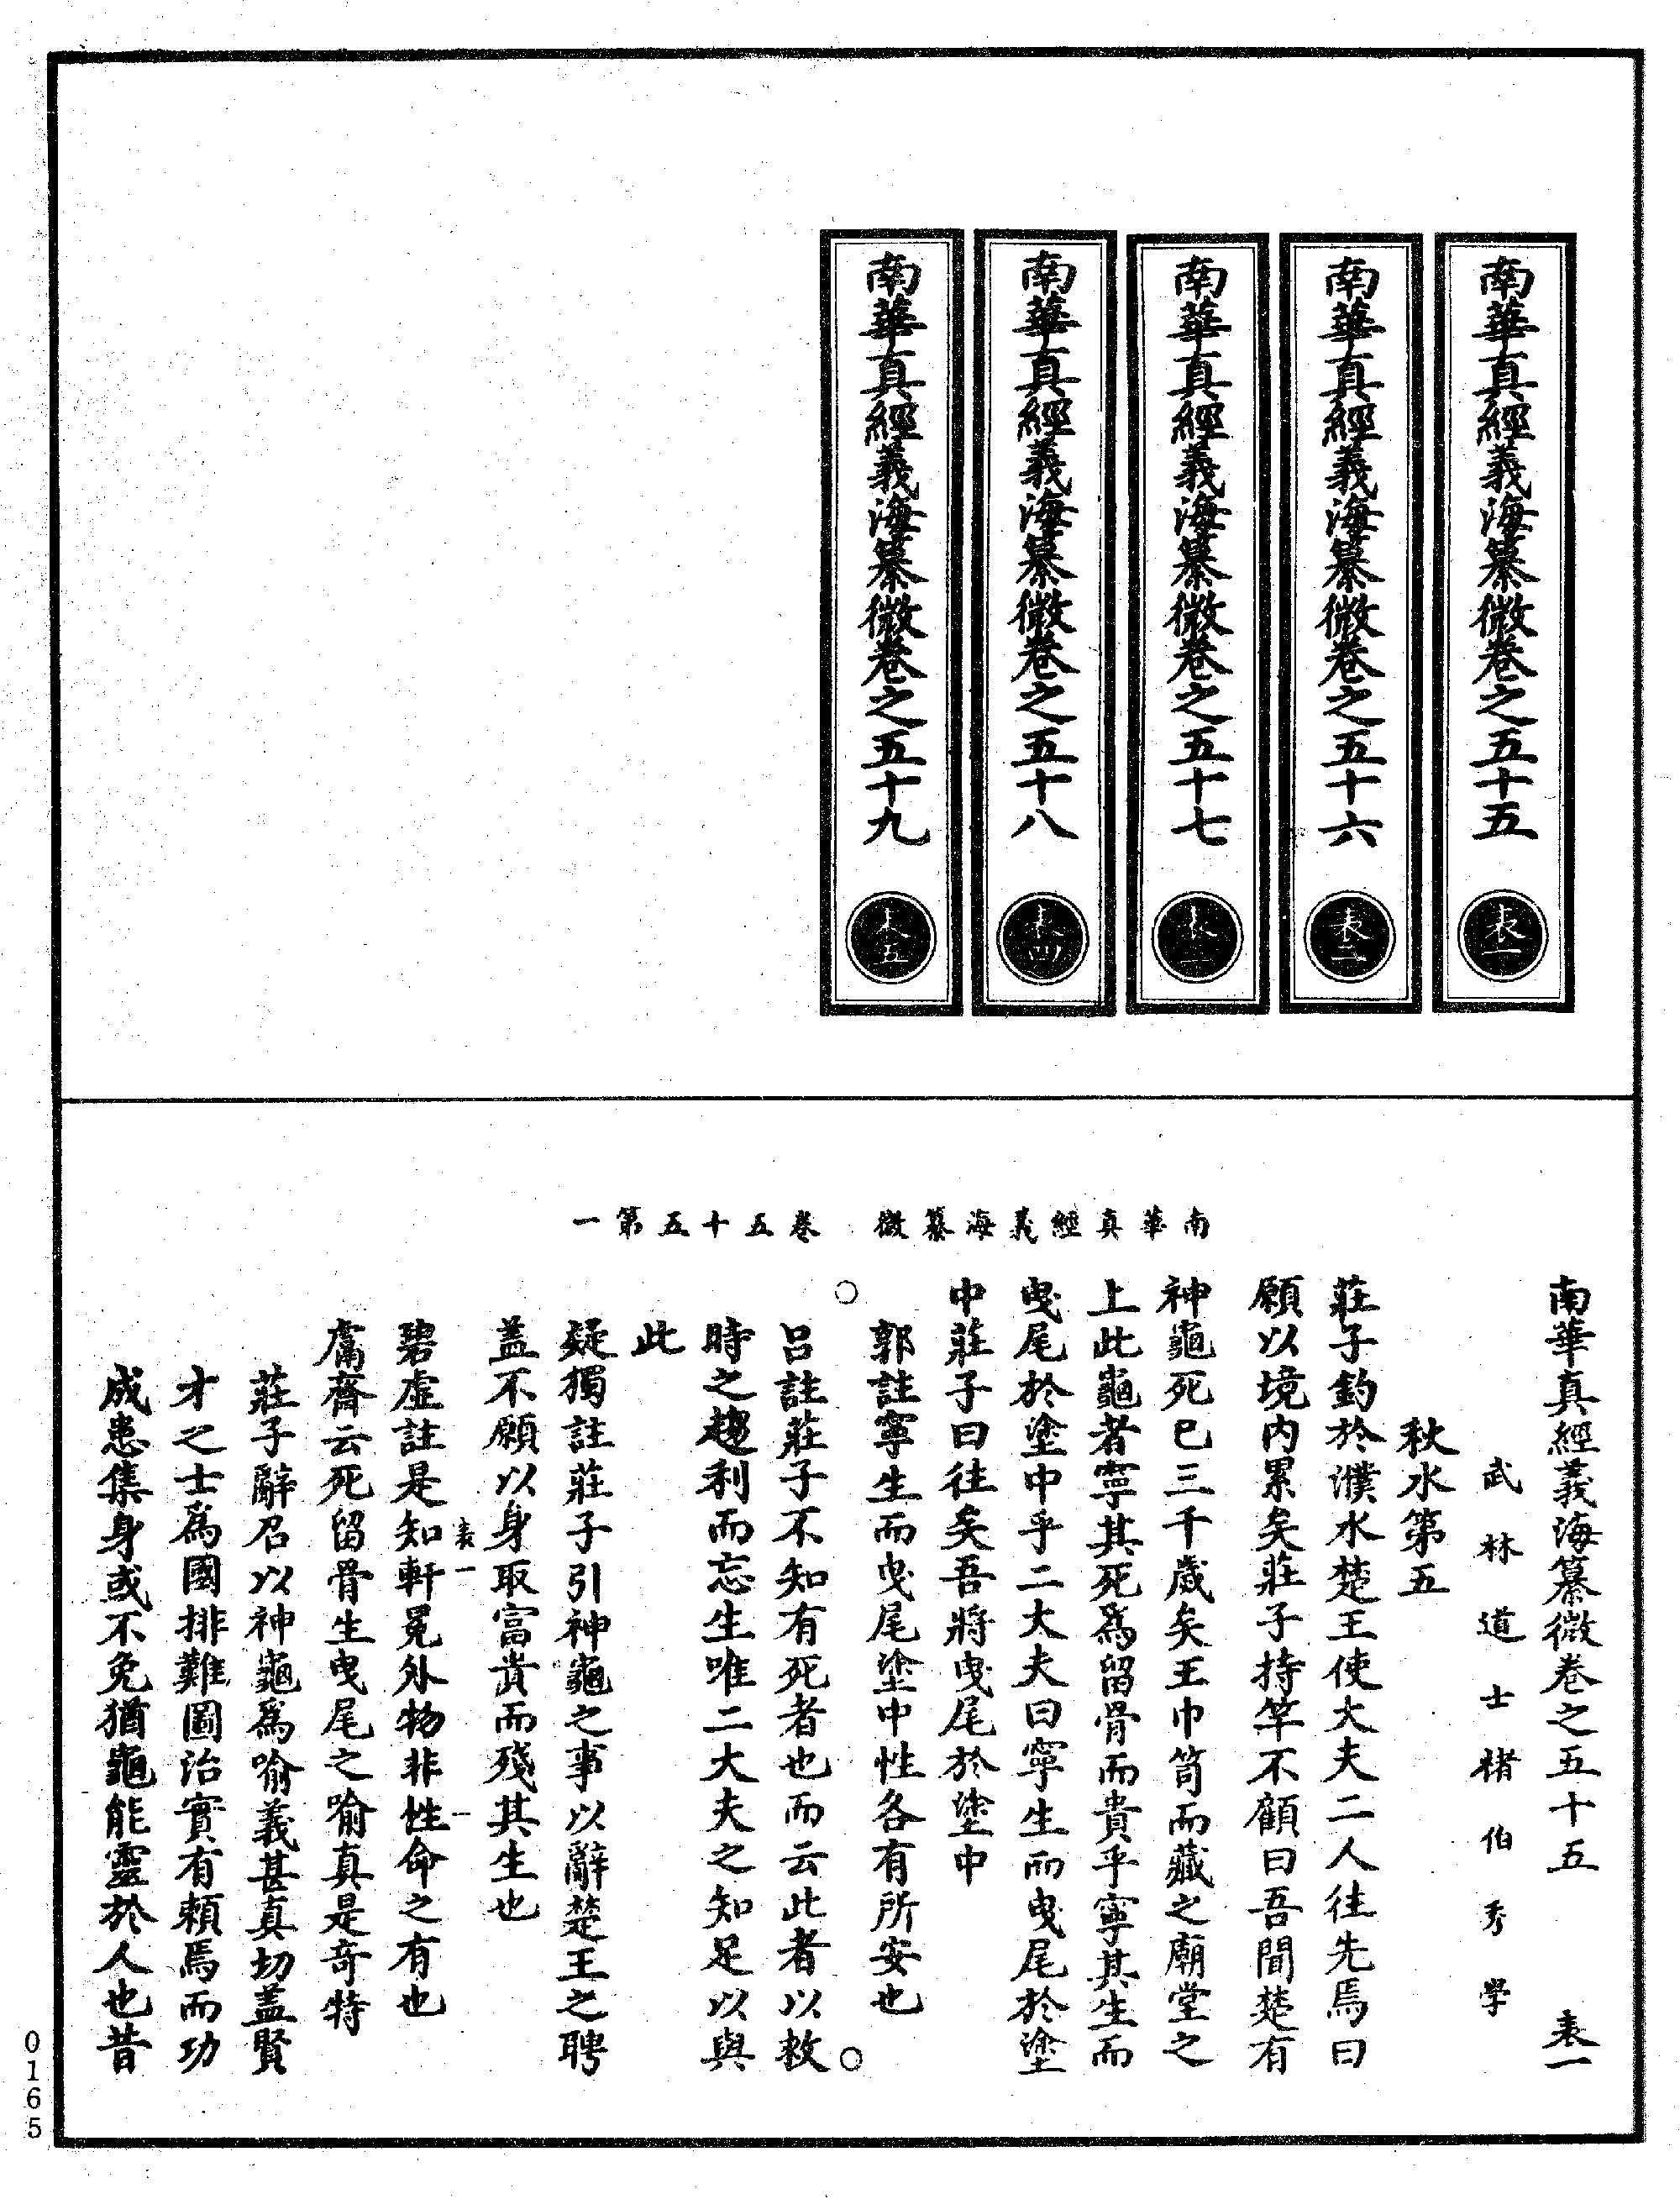 南華真經義海纂微卷之五十五
表一
南華真經義海纂微卷之五十六
表二
南華真經義海纂微卷之五十七
表三
南華真經義海纂微卷之五十八
表四
南華真經義海纂微卷之五十九
表五
南華真經義海纂微 卷五十五第一
南華真經義海纂微卷之五十五 表一
武林道士褚伯秀學
秋水第五
莊子釣於濮水楚王使大夫二人往先焉曰
願以境内累矣莊子持竿不顧曰吾聞楚有
神龜死已三千歲矣王巾笥而藏之廟堂之
上此龜者寧其死爲留骨而貴乎寧其生而
曳尾於塗中乎二大夫曰寧生而曳尾於塗
中莊子曰往矣吾將曳尾於塗中
郭註寧生而曳尾塗中性各有所安也
吕註莊子不知有死者也而云此者以救
時之趨利而忘生唯二大夫之知足以與
此
疑獨註莊子引神龜之事以辭楚王之聘
盖不願以身取富貴而殘其生也
表一 一
碧虛註是知軒冕外物非性命之有也
鬳齋云死留骨生曳尾之喻真是奇特
莊子辭召以神龜爲喻義甚真切盖賢
才之士爲國排難圖治實有賴焉而功
成患集身或不免猶龜能靈於人也昔
0165